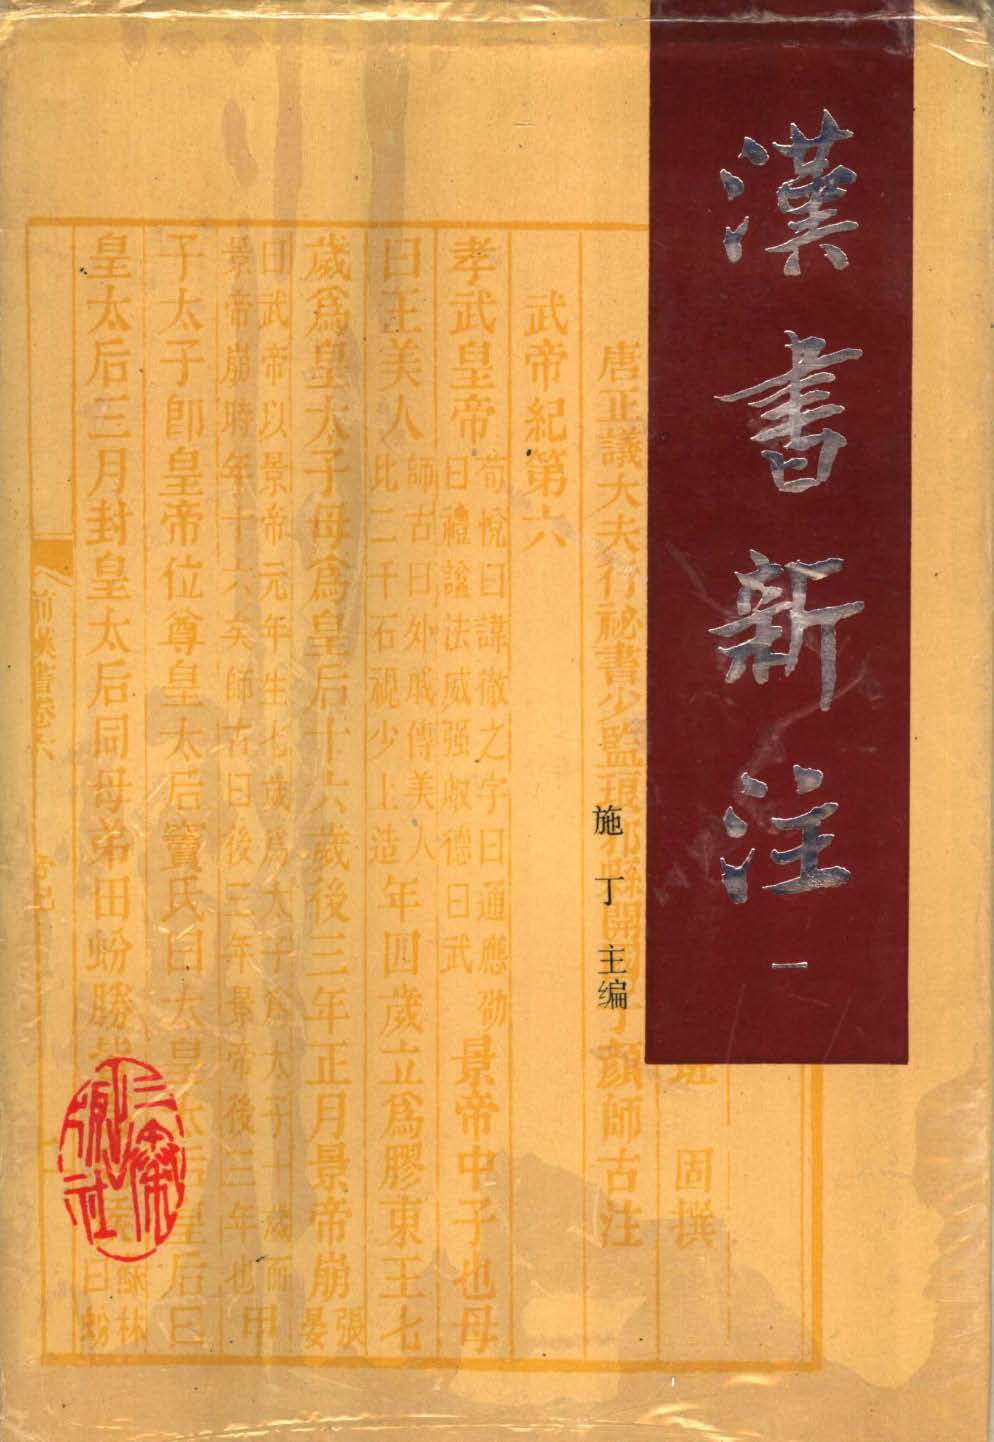 漢書新注
一
施丁主编
固撰
唐正議大夫行祕書少監琅邪縣開
顏師古注
武帝紀第六
孝武皇帝
荀悅曰諱徹之字曰通應劭
曰禮諡法威强叡德曰武
景帝中子也母
曰王美人
師古曰外戚傳美人
比二千石視少上造
年四歲立爲膠東王七
歲爲皇太子母爲皇后十六歲後三年正月景帝崩
張
晏
曰武帝以景帝元年生七歲爲太子爲太子十歲而
景帝崩時年十六矣師古曰後三年景帝後三年也
甲
子太子卽皇帝位尊皇太后竇氏曰太皇太后皇后曰
皇太后三月封皇太后同母弟田蚡勝
蘇林
曰蚡
前漢書卷六
三秦
社